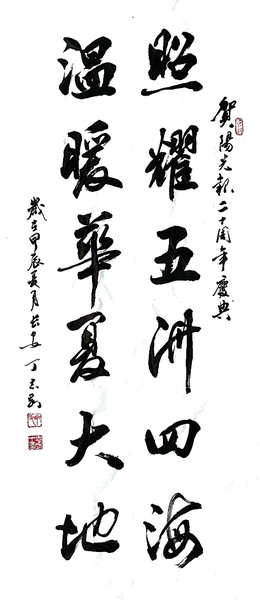 賀陽光報二十周年慶典
照耀五洲四海
溫暖華夏大地
歲在甲辰夏月長安丁志剛